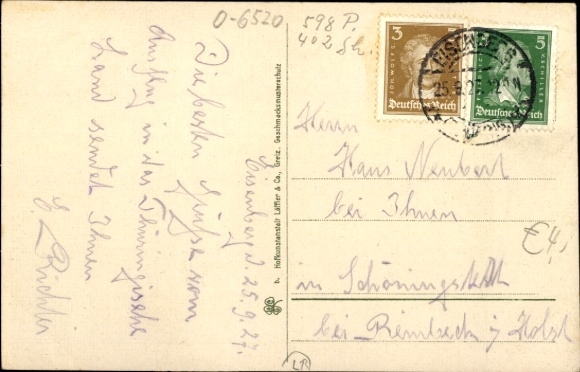 0-6520
598 P.
402 Sch.
Eisenberg d. 25.9.27.
Die besten Grüße vom
Ausflug in das Thüringische
Land sendet Ihnen
E. Richter
b. Hofkunstanstalt Löffler & Co., Greiz. Geschmacksmusterschutz
3
JOH. WOLFG.
Deutsches Reich
5
F. v. SCHILLER
Deutsches Reich
EISENBERG
25.9.27. 12
Herrn
Hans Neubert
bei Ihnen
in Schöningstedt
bei Reinbeck i/ Holst
€4,
LR